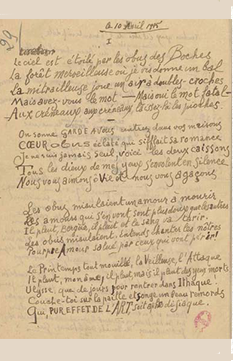 29
Le 10 Avril 1915
I
Le ciel est étoilé par les obus des Boches
La forêt merveilleuse où je donne un bal
La mitrailleuse joue un air à doubles-croches
Mais avez-vous le mot Mais oui le mot fatal
Aux créneaux aux créneaux laissez là les pioches
On sonne GARDE A VOUS rentrez dans vos maisons
CŒUR obus éclaté qui sifflait sa romance
Je ne suis jamais seul voici les deux caissons
Tous les dieux de mes yeux s'envolent en silence
Nous vous aimons ô Vie et nous vous agaçons
Les obus miaulaient un amour à mourir
Les amours qui s'en vont sont plus doux que les autres
Il pleut, Bergère, il pleut et le sang va tarir
Les obus miaulaient Entends chanter les nôtres
Pourpre Amour salué par ceux qui vont périr
Le Printemps tout mouillé, la Veilleuse, l'Attaque
Il pleut, mon âme, il pleut mais il pleut des yeux morts
Ulysse, que de jours pour rentrer dans Ithaque
Couche-toi sur la paille et songe un beau remords
Qui PUR EFFET DE L'ART soit aphrodisiaque.